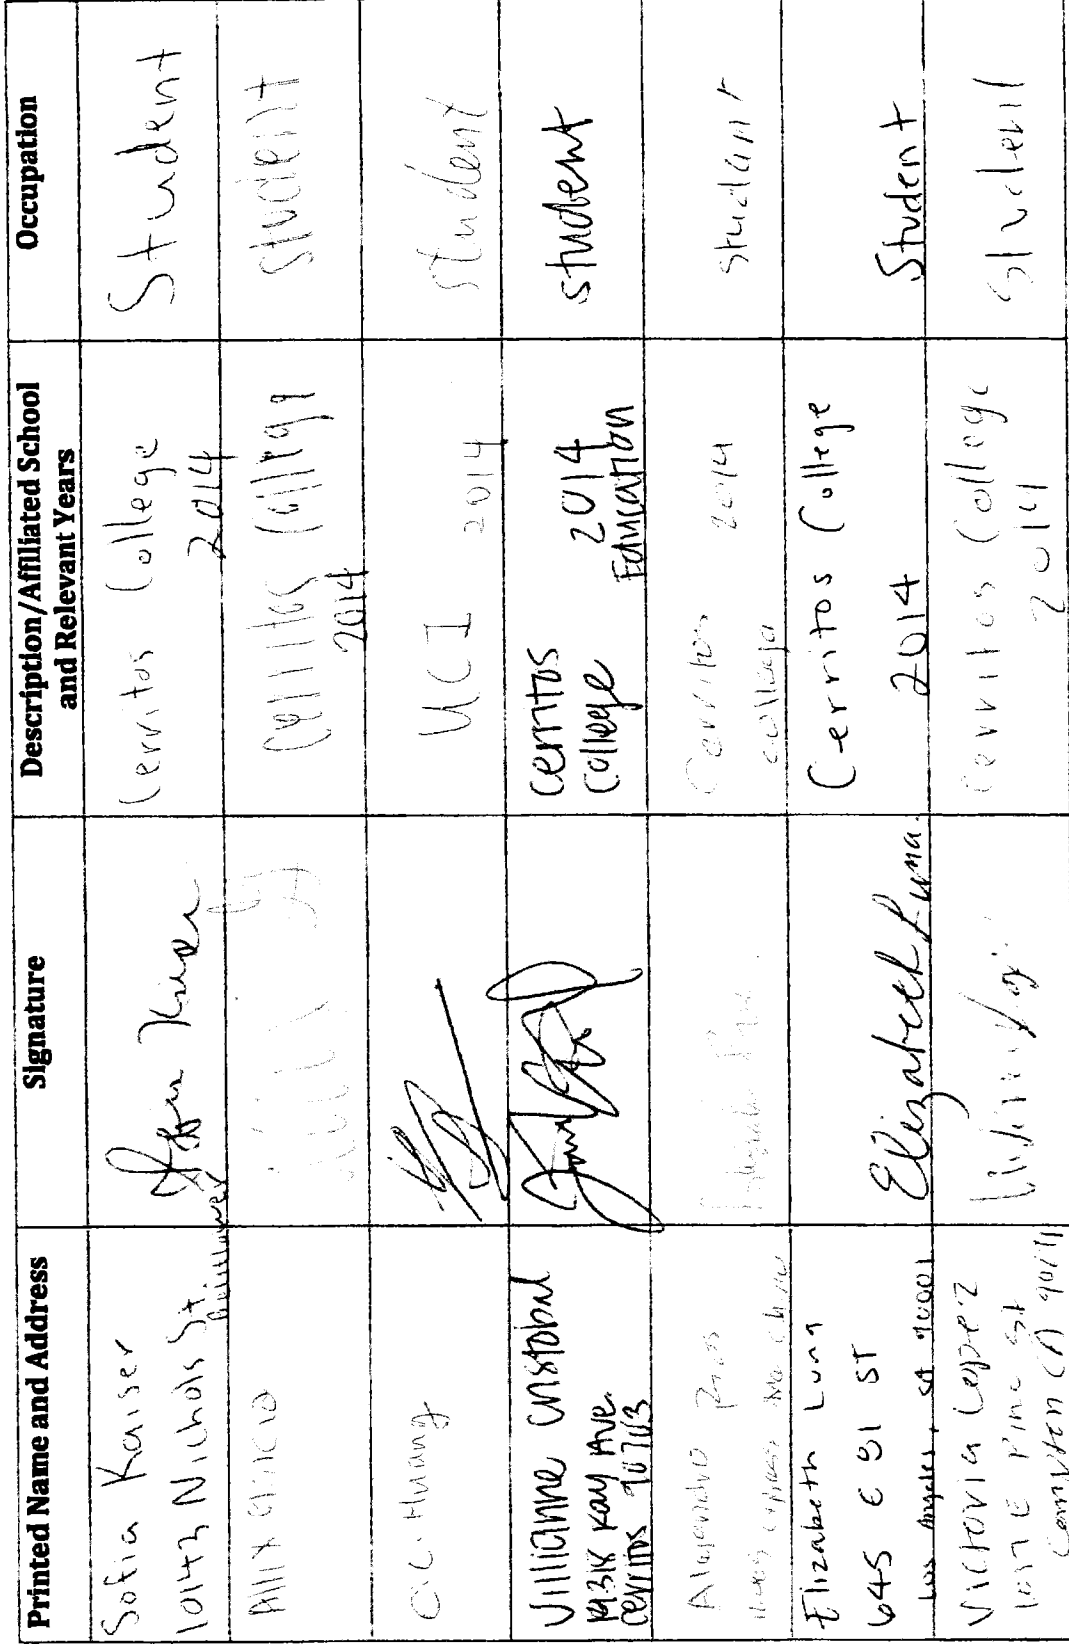 Printed Name and Address
Signature
Description/Affiliated School
and Relevant Years
Occupation
Sofia Kaiser
10142 Nichols St.
Bellflower
Cerritos College
2014
Student
Allix
Cerritos College
2014
student
Huang
UCI 2014
student
Jillianne Cristobal
Kay Ave.
Cerritos 90703
Cerritos
College
2014
Education
student
Alejandro
Cerritos 2014
college
student
Elizabeth Luna
645 E 81 ST
Los Angeles, CA 90001
Elizabeth Luna.
Cerritos College
2014
Student
Victoria Lopez
E Pine St
Compton CA
Cerritos College
2014
Student